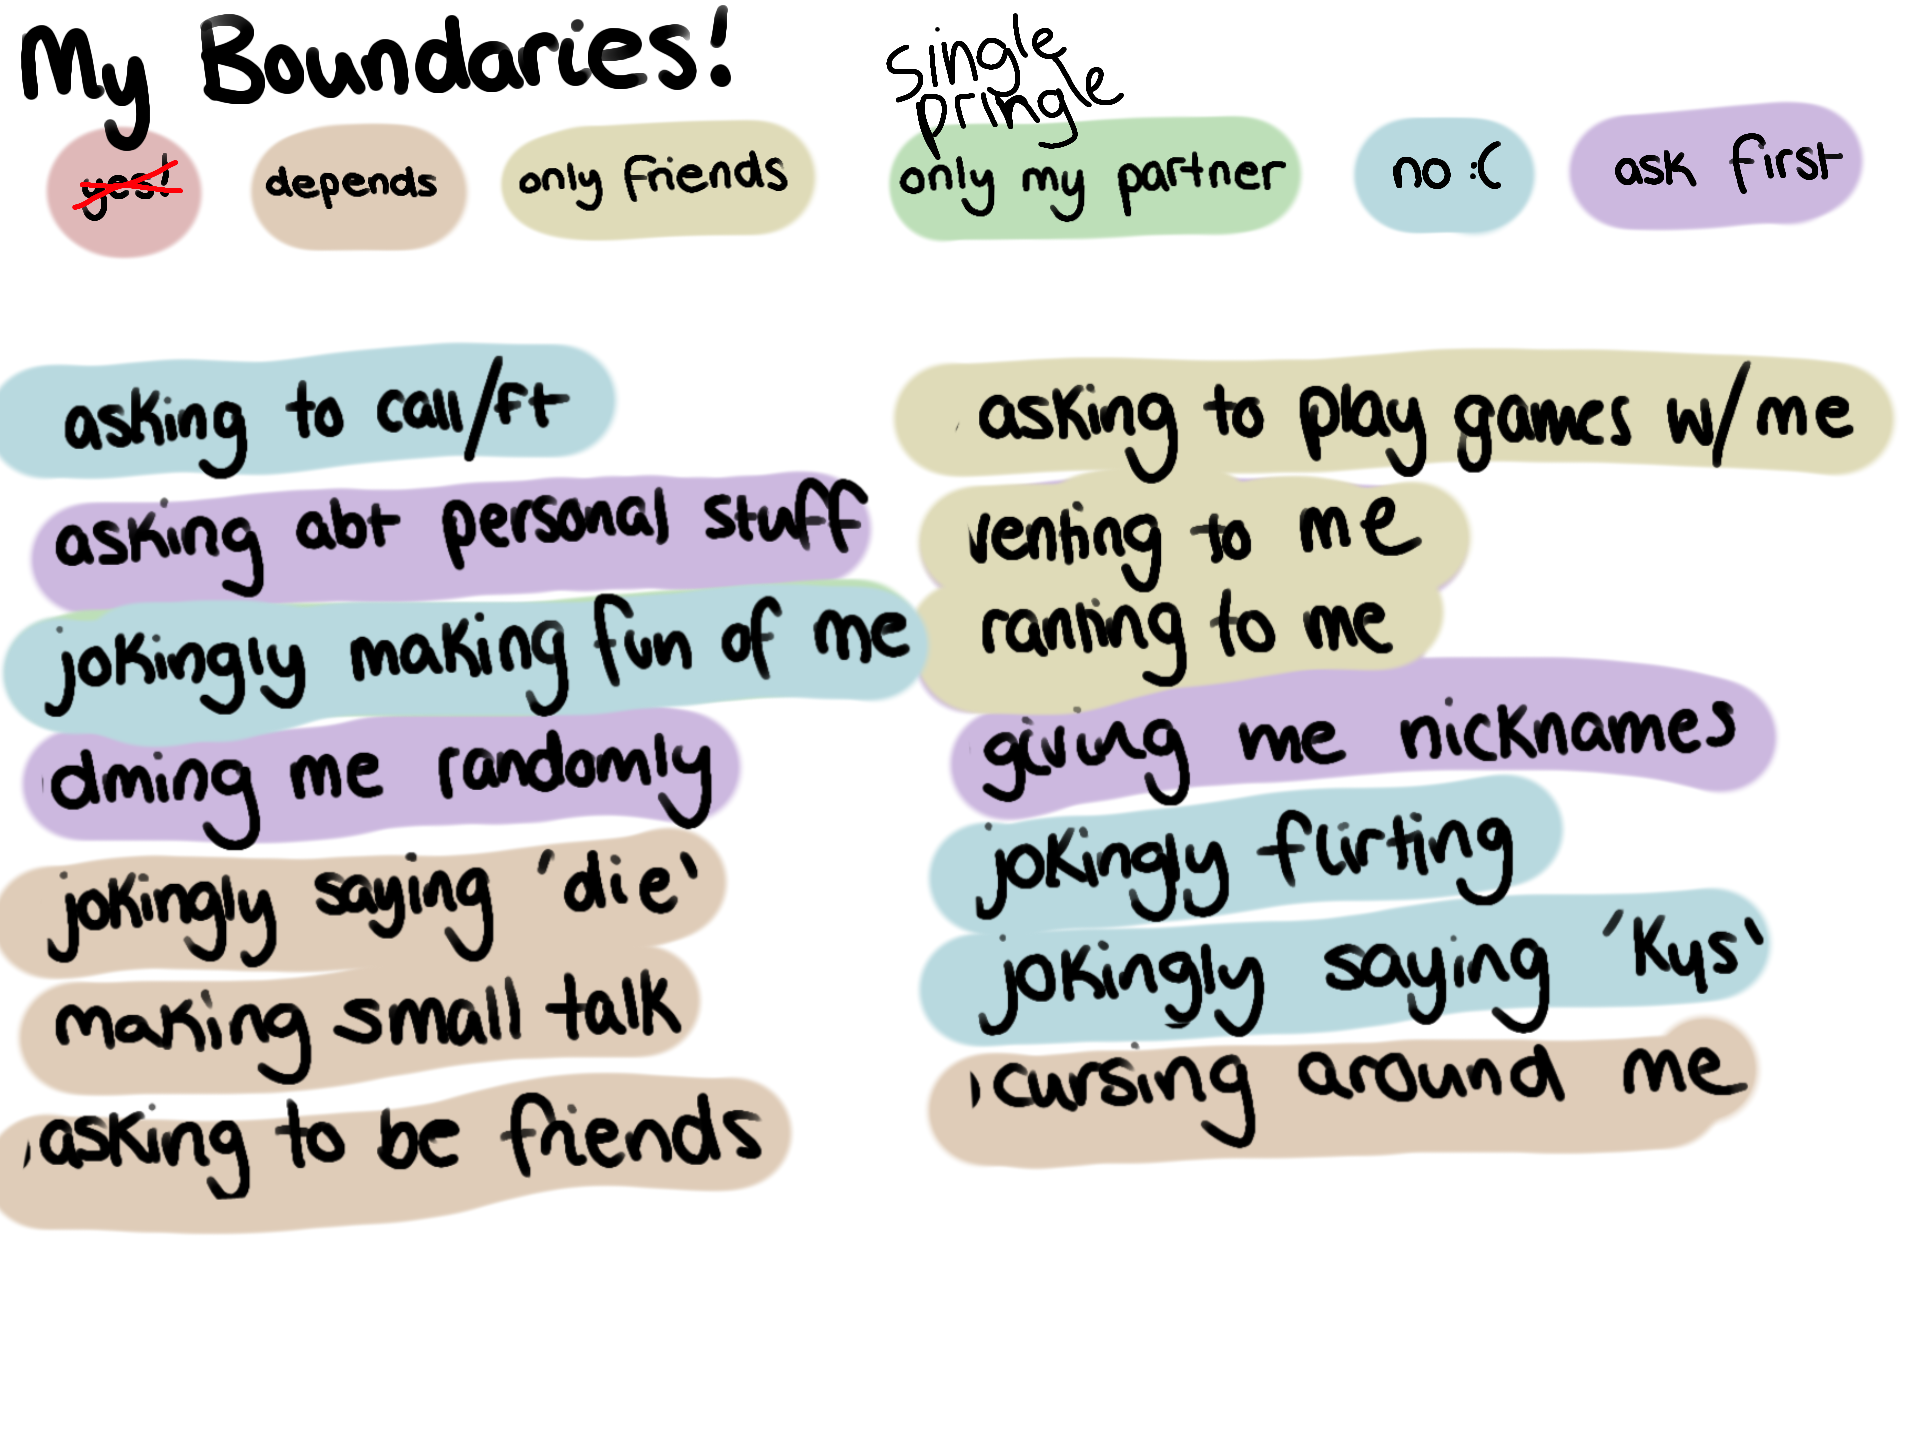 My Boundaries!
single
pringle
yes!
depends
only friends
only my partner
no :(
ask first
asking to call/ft
asking abt personal stuff
jokingly making fun of me
dming me randomly
jokingly saying 'die'
making small talk
asking to be friends
asking to play games w/me
venting to me
ranting to me
giving me nicknames
jokingly flirting
jokingly saying 'kys'
cursing around me